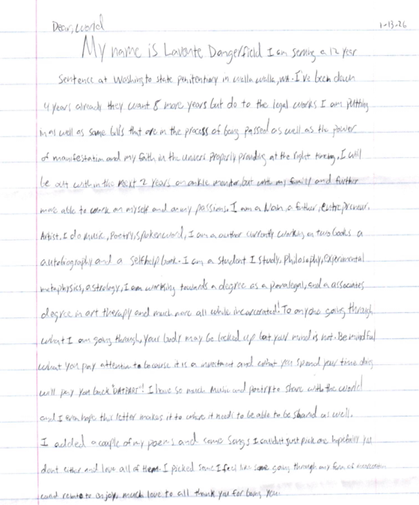 Dear, world 1-13-26
My name is Lavonte Dangerfield I am serving a 12 year
sentence at Washington state penitentiary in walla walla, wa. I've been down
4 years already they want 8 more years but do to the legal works I am putting
in as well as some bills that are in the process of being passed as well as the power
of manifestation and my faith in the univers properly providing at the right timing, I will
be out within the next 2 years on ankle monitor but with my family and further
more able to work on myself and on my passions. I am a a father,
Artist. I do music, Poetry, spoken word, I am a author currently working on two books a
autobiography and a self help book. I am a student I study, Philosophy, Experimental
metaphysics, astrology, I am working towards a degree as a paralegal, and a associates
degree in art therapy and much more all while incarcerated! To anyone going through
what I am going through, your body may be locked up but your mind is not. Be mindful
what you pay attention to because it is a investment and what you spend your time doing
will pay you back I have so much music and poetry to share with the world
and I even hope this letter makes it to where it needs to be able to be shared as well.
I added a couple of my poems and some songs I couldnt just pick one hopefully you
dont either and love all of them I picked some I feel like some going through my form of
could relate to enjoy much love to all thank you for being you.